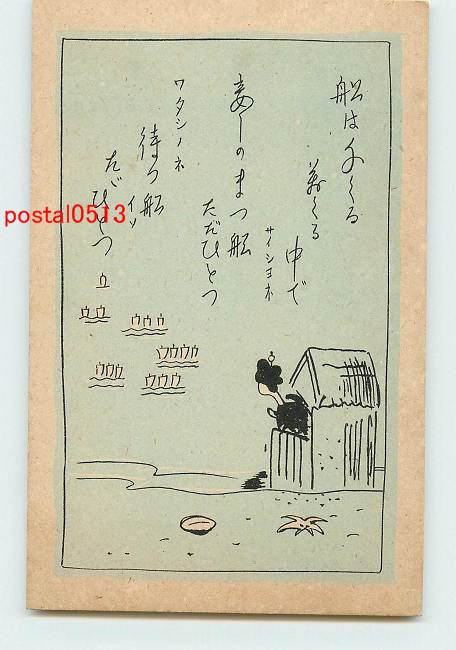 船は千くる
萬くる
中で
サイシヨネ
妾しのまつ船
ただひとつ
ワタシノネ
待つ船
イツ
ただひとつ
postal0513